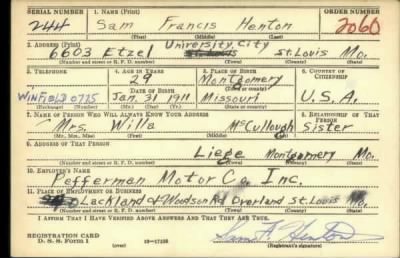 SERIAL NUMBER 1. NAME (Print) ORDER NUMBER
244 Sam Francis Henton 2060
(First) (Middle) (Last)
2. ADDRESS (Print) University City
6603 Etzel St. Louis Mo.
(Number and street or R. F. D. number) (Town) (County) (State)
3. TELEPHONE 4. AGE IN YEARS 5. PLACE OF BIRTH 6. COUNTRY OF CITIZENSHIP
29 Montgomery
DATE OF BIRTH (Town or county)
WINFIELD 0775 Jan. 31 1911 Missouri U.S.A.
(Exchange) (Number) (Mo.) (Day) (Yr.) (State or country)
7. NAME OF PERSON WHO WILL ALWAYS KNOW YOUR ADDRESS 8. RELATIONSHIP OF THAT PERSON
Mrs. Willa McCullough Sister
(Mr., Mrs., Miss) (First) (Middle) (Last)
9. ADDRESS OF THAT PERSON
Liege Montgomery Mo.
(Number and street or R. F. D. number) (Town) (County) (State)
10. EMPLOYER'S NAME
Pefferman Motor Co. Inc.
11. PLACE OF EMPLOYMENT OR BUSINESS
Lackland & Woodson Rd Overland St. Louis Mo.
(Number and street or R. F. D. number) (Town) (County) (State)
I AFFIRM THAT I HAVE VERIFIED ABOVE ANSWERS AND THAT THEY ARE TRUE.
REGISTRATION CARD
D. S. S. Form 1 (over) 16—17105 (Registrant's signature)